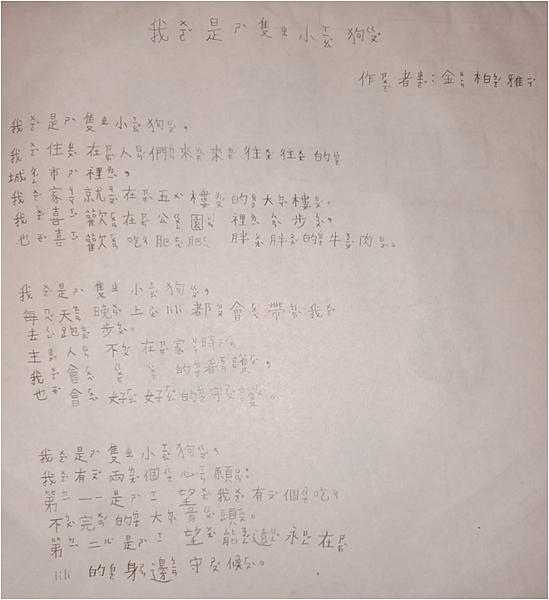 我是隻小狗
作者:金柏雅
我是隻小狗,
我住在人們來來往往的
城市裡。
我家就在五樓的大樓。
我喜歡在公園裡 步,
也喜歡吃肥肥 胖胖的牛肉。
我是隻小狗,
每天晚上lili都會帶我
去跑步。
主人不在家時,
我會 的看護,
也會好好的守護。
我是隻小狗,
我有兩個心願:
第一是 望我有個吃
不完的大骨頭。
第二是 望能遠永在
lili的身邊守候。